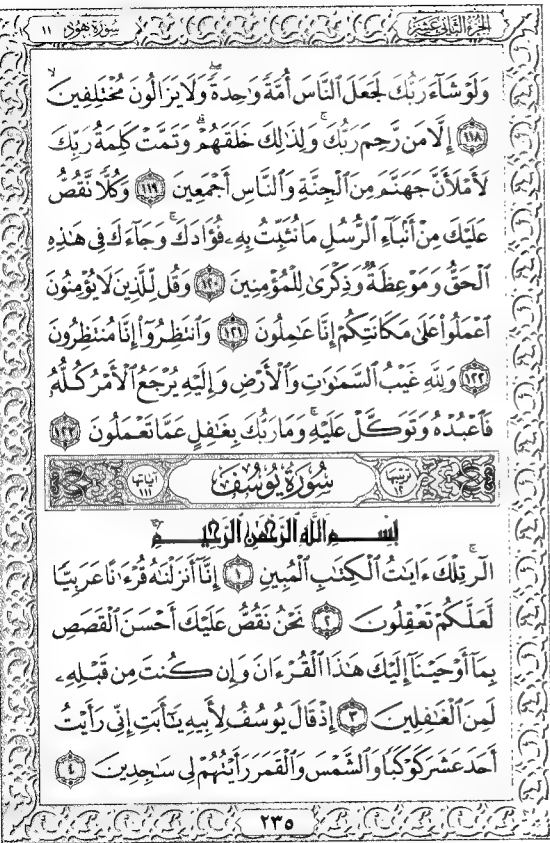 الجزء الثاني عشر
سورة هود ١١
وَلَوْ شَآءَ رَبُّكَ لَجَعَلَ ٱلنَّاسَ أُمَّةً وَٰحِدَةً ۖ وَلَا يَزَالُونَ مُخْتَلِفِينَ
١١٨ إِلَّا مَن رَّحِمَ رَبُّكَ ۚ وَلِذَٰلِكَ خَلَقَهُمْ ۗ وَتَمَّتْ كَلِمَةُ رَبِّكَ
لَأَمْلَأَنَّ جَهَنَّمَ مِنَ ٱلْجِنَّةِ وَٱلنَّاسِ أَجْمَعِينَ ١١٩ وَكُلًّا نَّقُصُّ
عَلَيْكَ مِنْ أَنۢبَآءِ ٱلرُّسُلِ مَا نُثَبِّتُ بِهِۦ فُؤَادَكَ ۚ وَجَآءَكَ فِى هَٰذِهِ
ٱلْحَقُّ وَمَوْعِظَةٌ وَذِكْرَىٰ لِلْمُؤْمِنِينَ ١٢٠ وَقُل لِّلَّذِينَ لَا يُؤْمِنُونَ
ٱعْمَلُوا۟ عَلَىٰ مَكَانَتِكُمْ إِنَّا عَٰمِلُونَ ١٢١ وَٱنتَظِرُوٓا۟ إِنَّا مُنتَظِرُونَ
١٢٢ وَلِلَّهِ غَيْبُ ٱلسَّمَٰوَٰتِ وَٱلْأَرْضِ وَإِلَيْهِ يُرْجَعُ ٱلْأَمْرُ كُلُّهُۥ
فَٱعْبُدْهُ وَتَوَكَّلْ عَلَيْهِ ۚ وَمَا رَبُّكَ بِغَٰفِلٍ عَمَّا تَعْمَلُونَ ١٢٣
ترتيبها ١٢ سُورَةُ يُوسُفَ آياتها ١١١
بِسْمِ ٱللَّهِ ٱلرَّحْمَٰنِ ٱلرَّحِيمِ
الٓر ۚ تِلْكَ ءَايَٰتُ ٱلْكِتَٰبِ ٱلْمُبِينِ ١ إِنَّآ أَنزَلْنَٰهُ قُرْءَٰنًا عَرَبِيًّا
لَّعَلَّكُمْ تَعْقِلُونَ ٢ نَحْنُ نَقُصُّ عَلَيْكَ أَحْسَنَ ٱلْقَصَصِ
بِمَآ أَوْحَيْنَآ إِلَيْكَ هَٰذَا ٱلْقُرْءَانَ وَإِن كُنتَ مِن قَبْلِهِۦ
لَمِنَ ٱلْغَٰفِلِينَ ٣ إِذْ قَالَ يُوسُفُ لِأَبِيهِ يَٰٓأَبَتِ إِنِّى رَأَيْتُ
أَحَدَ عَشَرَ كَوْكَبًا وَٱلشَّمْسَ وَٱلْقَمَرَ رَأَيْتُهُمْ لِى سَٰجِدِينَ ٤
٢٣٥